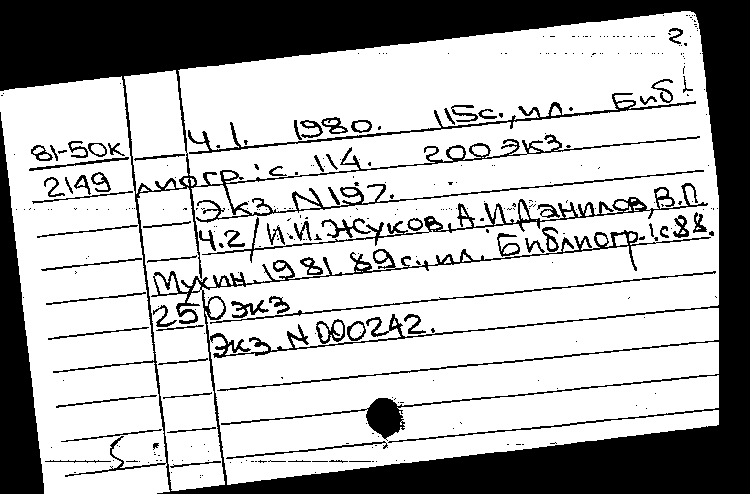 2.
81-50к Ч.1. 1980. 115с., ил. Биб-
2149 лиогр.: с. 114. 200 экз.
Экз N197.
Ч.2/И.И.Жуков, А.И.Данилов, В.П.
Мухин. 1981. 89с., ил. Библиогр.: с.88.
250 экз.
Экз. N000242.